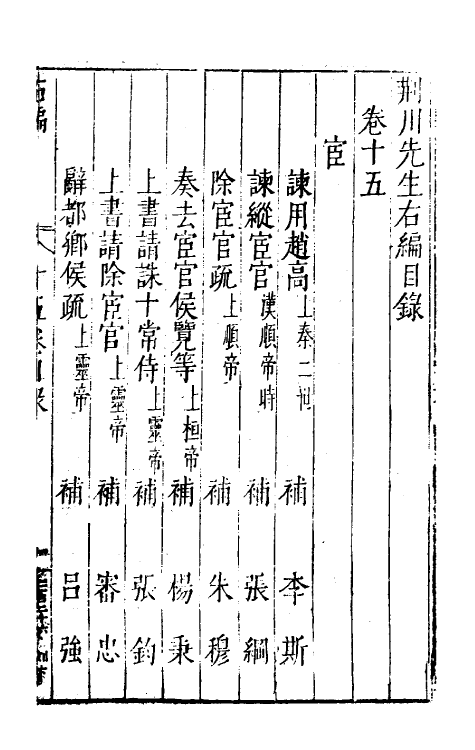 荆川先生右編目錄
卷十五
宦
諫用趙高上秦二世 補 李斯
諫縱宦官漢順帝時 補 張綱
除宦官疏上順帝 補 朱穆
奏去宦官侯覽等上桓帝 補 楊秉
上書請誅十常侍上靈帝 補 張鈞
上書請除宦官上靈帝 補 審忠
辭都鄉侯疏上靈帝 補 呂強
右編 十五卷目录 一